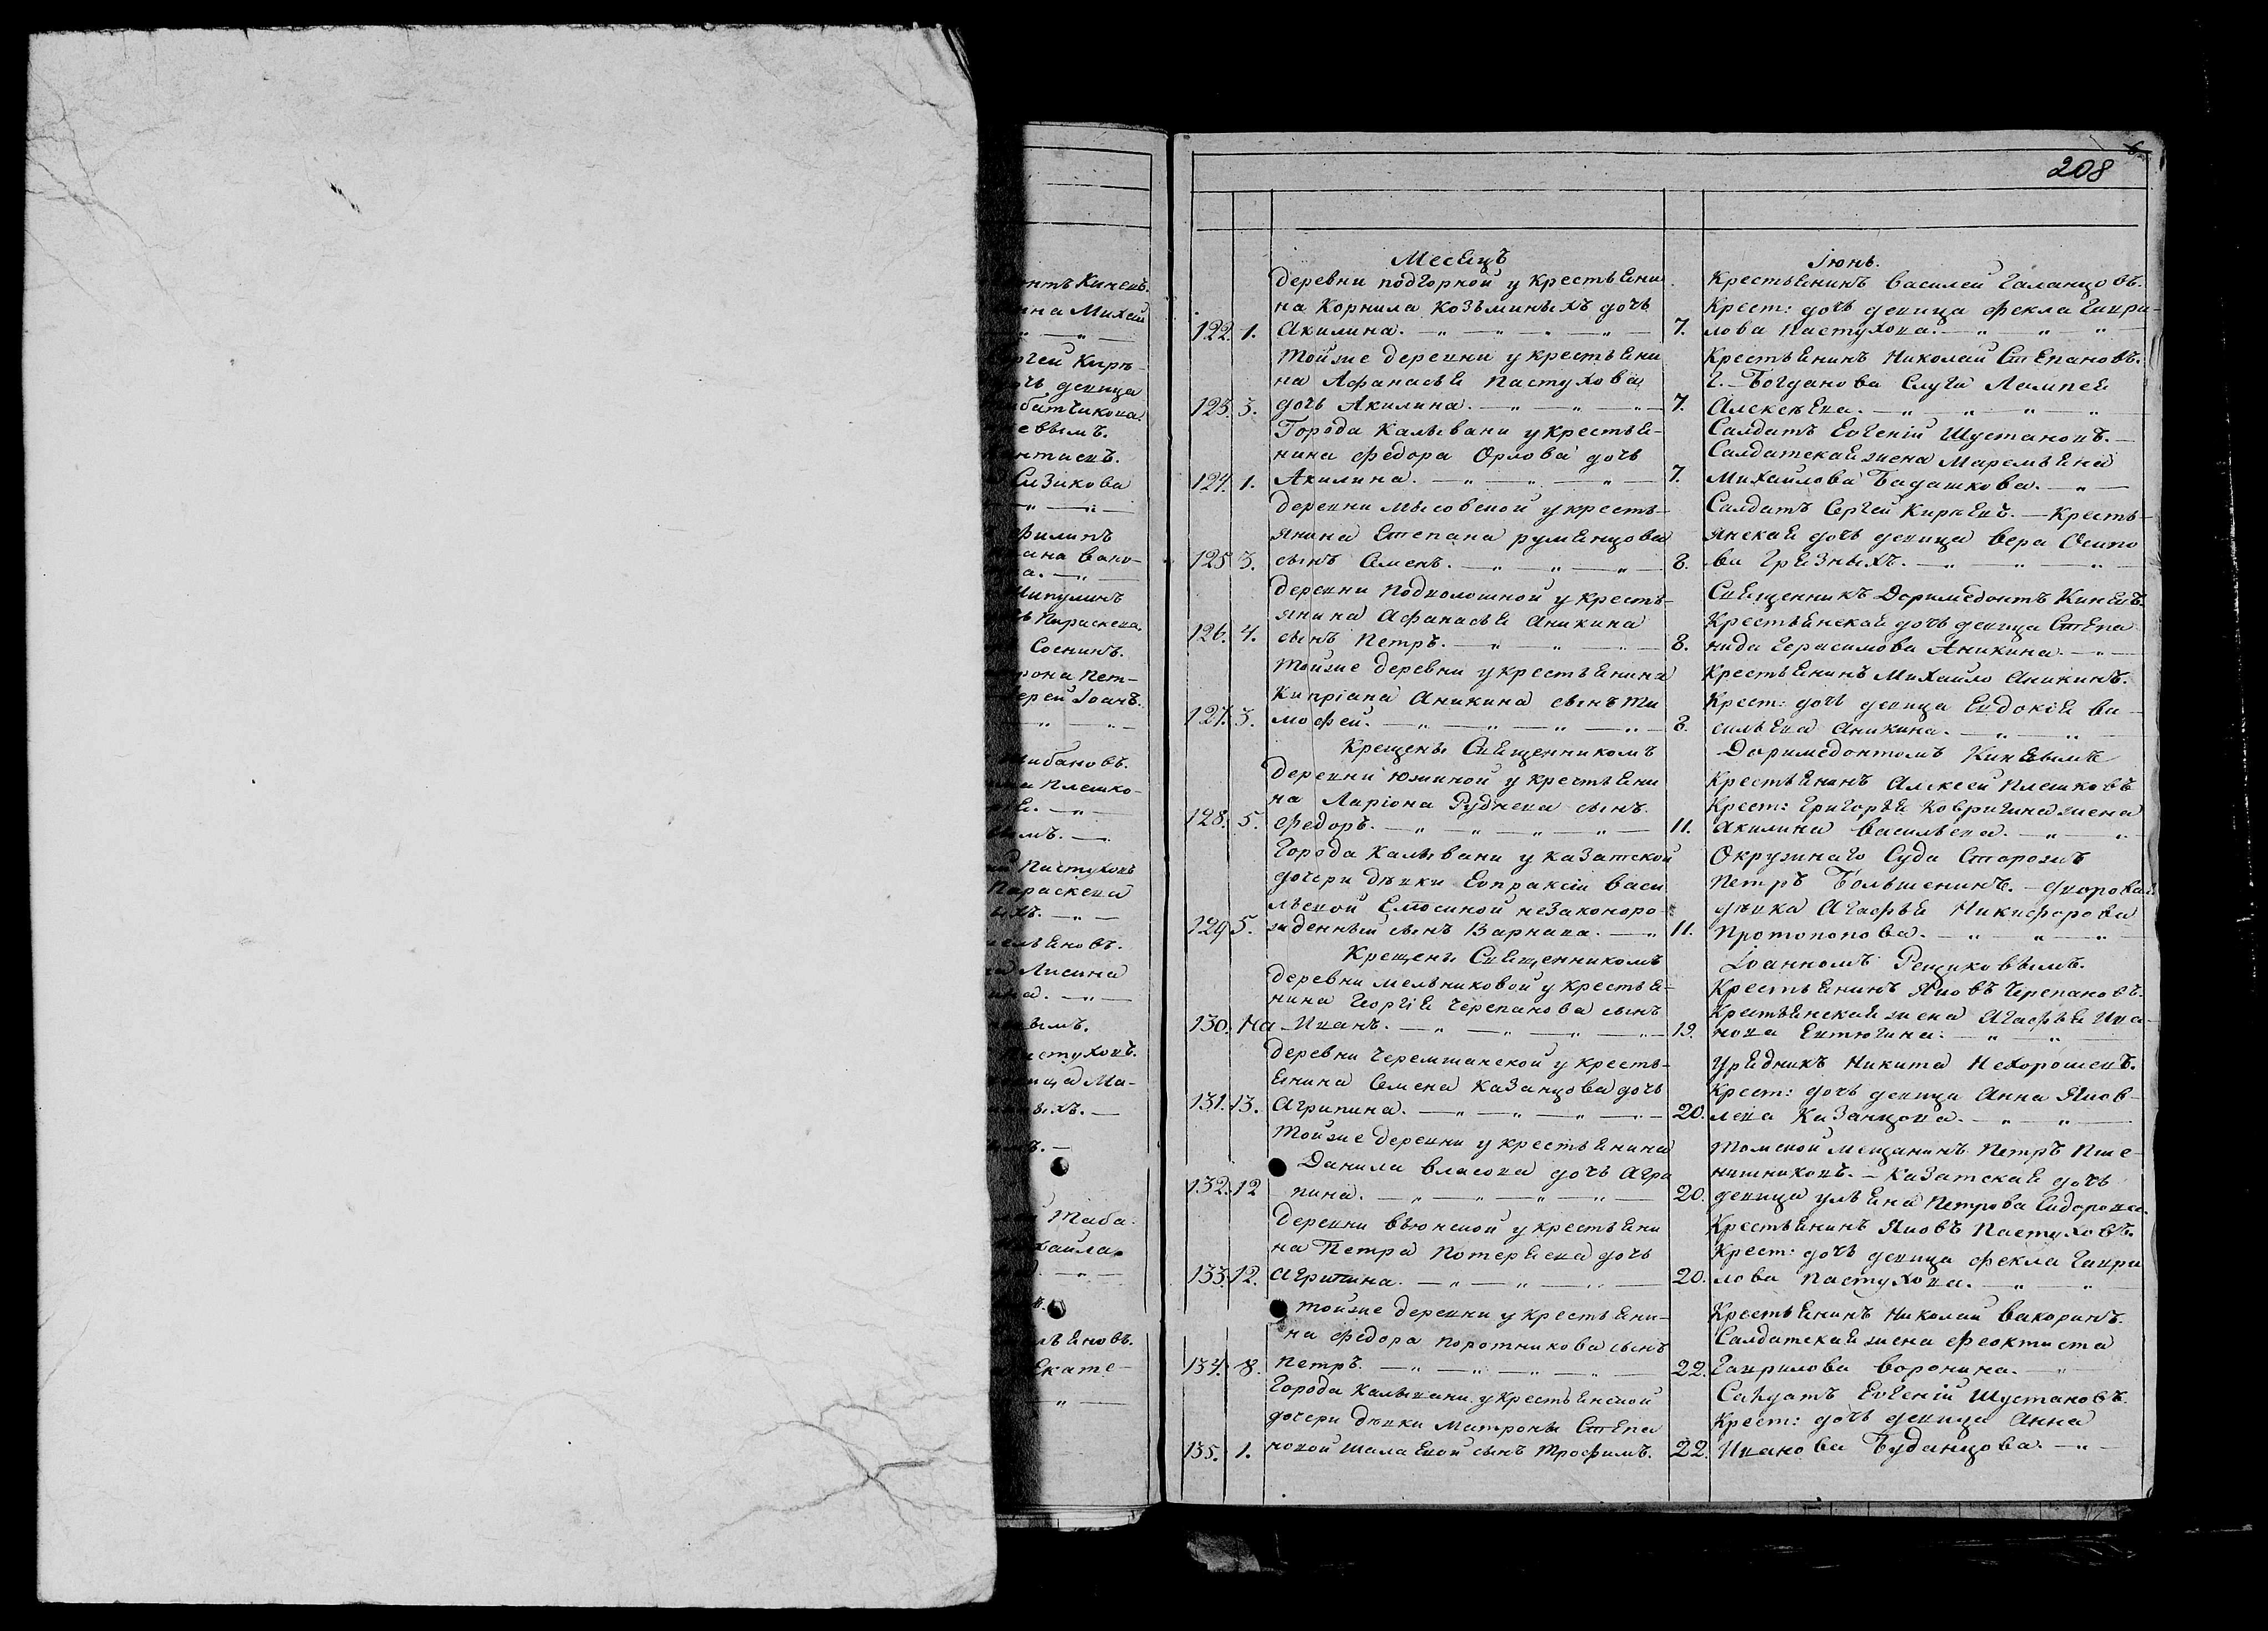 208
Месяцъ
Іюнь.
деревни подгорной у крестьяни
на Корнила Козьминыхъ дочь
122. 1. Акилина. 7.
Крестьянинъ Василеи Галанцовъ.
Крест: дочь девица Фекла Гаври-
лова Пастухова.
Тойже деревни у крестьяни
на Афанасья Пастухова
123. 3. дочь Акилина. 7.
Крестьянинъ Николай Степановъ.
Г. Богданова Слуга
Алексѣева.
Города Калывани у крестья-
нина Федора Орлова дочь
124. 1. Акилина. 7.
Салдатъ Евгеній Шустановъ.
Салдатская жена Маремьяна
Михайлова Бадашкова.
деревни Мысовской у кресть-
янина Степана Румянцова
125 3. сынъ Семенъ. 8.
Салдатъ Сергей Кирѣевъ. — Кресть-
янская дочь девица Вера Осипо
ва Грязныхъ.
деревни Подволошной у кресть-
янина Афанасья Аникина
126. 4. сынъ Петръ. 8.
Священникъ Доримедонтъ Киневъ.
Крестьянская дочь девица Степа
нида Герасимова Аникина.
Тойже деревни у крестьянина
Кипріана Аникина сынъ Ти
127. 3. мофей. 8.
Крестьянинъ Михайло Аникинъ.
Крест: дочь девица Евдокія Ва-
сильева Аникина.
Крещены Священникомъ
Доримедонтомъ Киневымъ
деревни Южиной у крестьяни
на Ларіона Руднева сынъ
128. 5. Федоръ. 11.
Крестьянинъ Алексей Плешковъ
Крест: Григорья Ковригина жена
Акилина Васильева.
Города Калывани у казатской
дочери дѣвки Евпраксіи Васи
льевой незаконоро-
129 5. жденный сынъ Варнава. 11.
Окружнаго Суда Сторожъ
Петръ Большенинъ. — дворовая
дѣвка Агафья Никифорова
Протопопова.
Крещены Священникомъ
Іоанномъ Рещиковымъ.
деревни Мельниковой у крестья-
нина Георгія Черепанова сынъ
130. На Иванъ. 19.
Крестьянинъ Яковъ Черепановъ.
Крестьянская жена Агафья Ива-
нова Евтюгина.
деревни Черемшанской у кресть-
янина Семена Казанцова дочь
131. 13. Агрипина. 20.
Урядникъ Никита Нехорошевъ.
Крест: дочь девица Анна Яков-
лева Казанцова.
Тойже деревни у крестьянина
Данила Власова дочь Агри
132. 12 пина. 20.
Томской мещанинъ Петръ Пше-
нишниковъ. — Казатская дочь
девица Ульяна Петрова Сидорова.
деревни Вьюнской у крестьяни
на Петра Потеряева дочь
133. 12. Агрипина. 20.
Крестьянинъ Яковъ Пастуховъ.
Крест: дочь девица Фекла Гаври
лова Пастухова.
Тойже деревни у крестьяни-
на Федора Поротникова сынъ
134. 8. Петръ. 22.
Крестьянинъ Николай Вакоринъ.
Салдатская жена Феоктиста
Гаврилова Воронина.
Города Калывани у крестьянской
дочери дѣвки Матроны Степа
135. 1. новой Шалаевой сынъ Трофимъ. 22.
Салдатъ Евгеній Шустановъ.
Крест: дочь девица Анна
Иванова Буданцова.